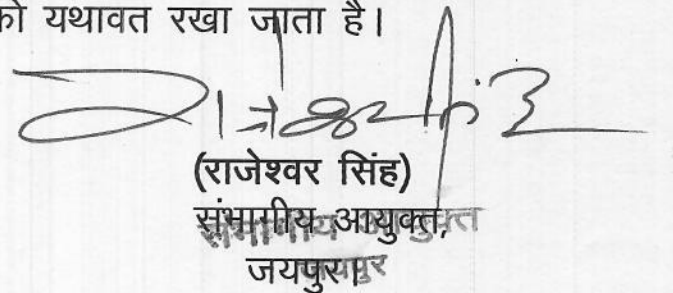 को यथावत रखा जाता है।
(राजेश्वर सिंह)
संभागीय आयुक्त,
जयपुर।